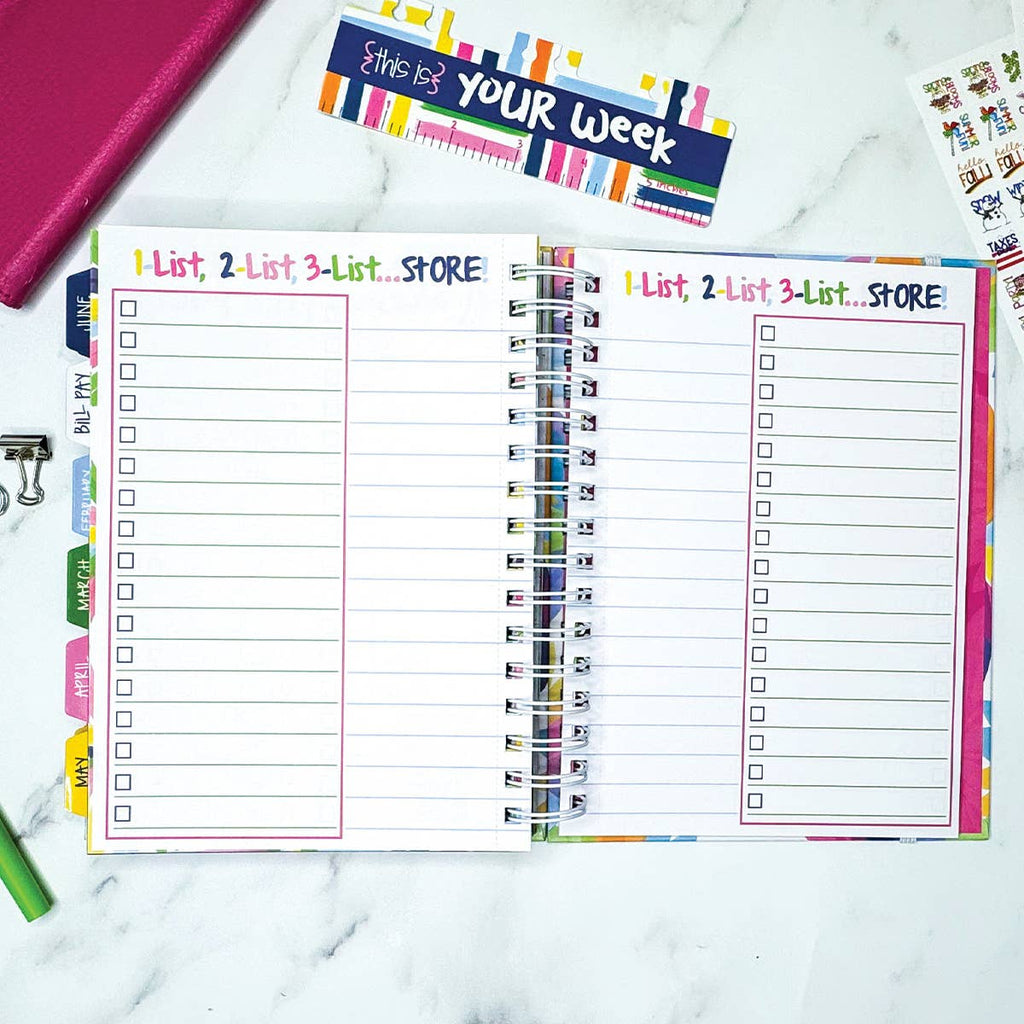 {this is} YOUR Week
1 2 3 4 5 inches
SUMMER FUN!
hello FALL!
hello FALL!
SNOW
TAXES
1-List, 2-List, 3-List...STORE!
1-List, 2-List, 3-List...STORE!
JUNE
BILL PAY
FEBRUARY
MARCH
APRIL
MAY